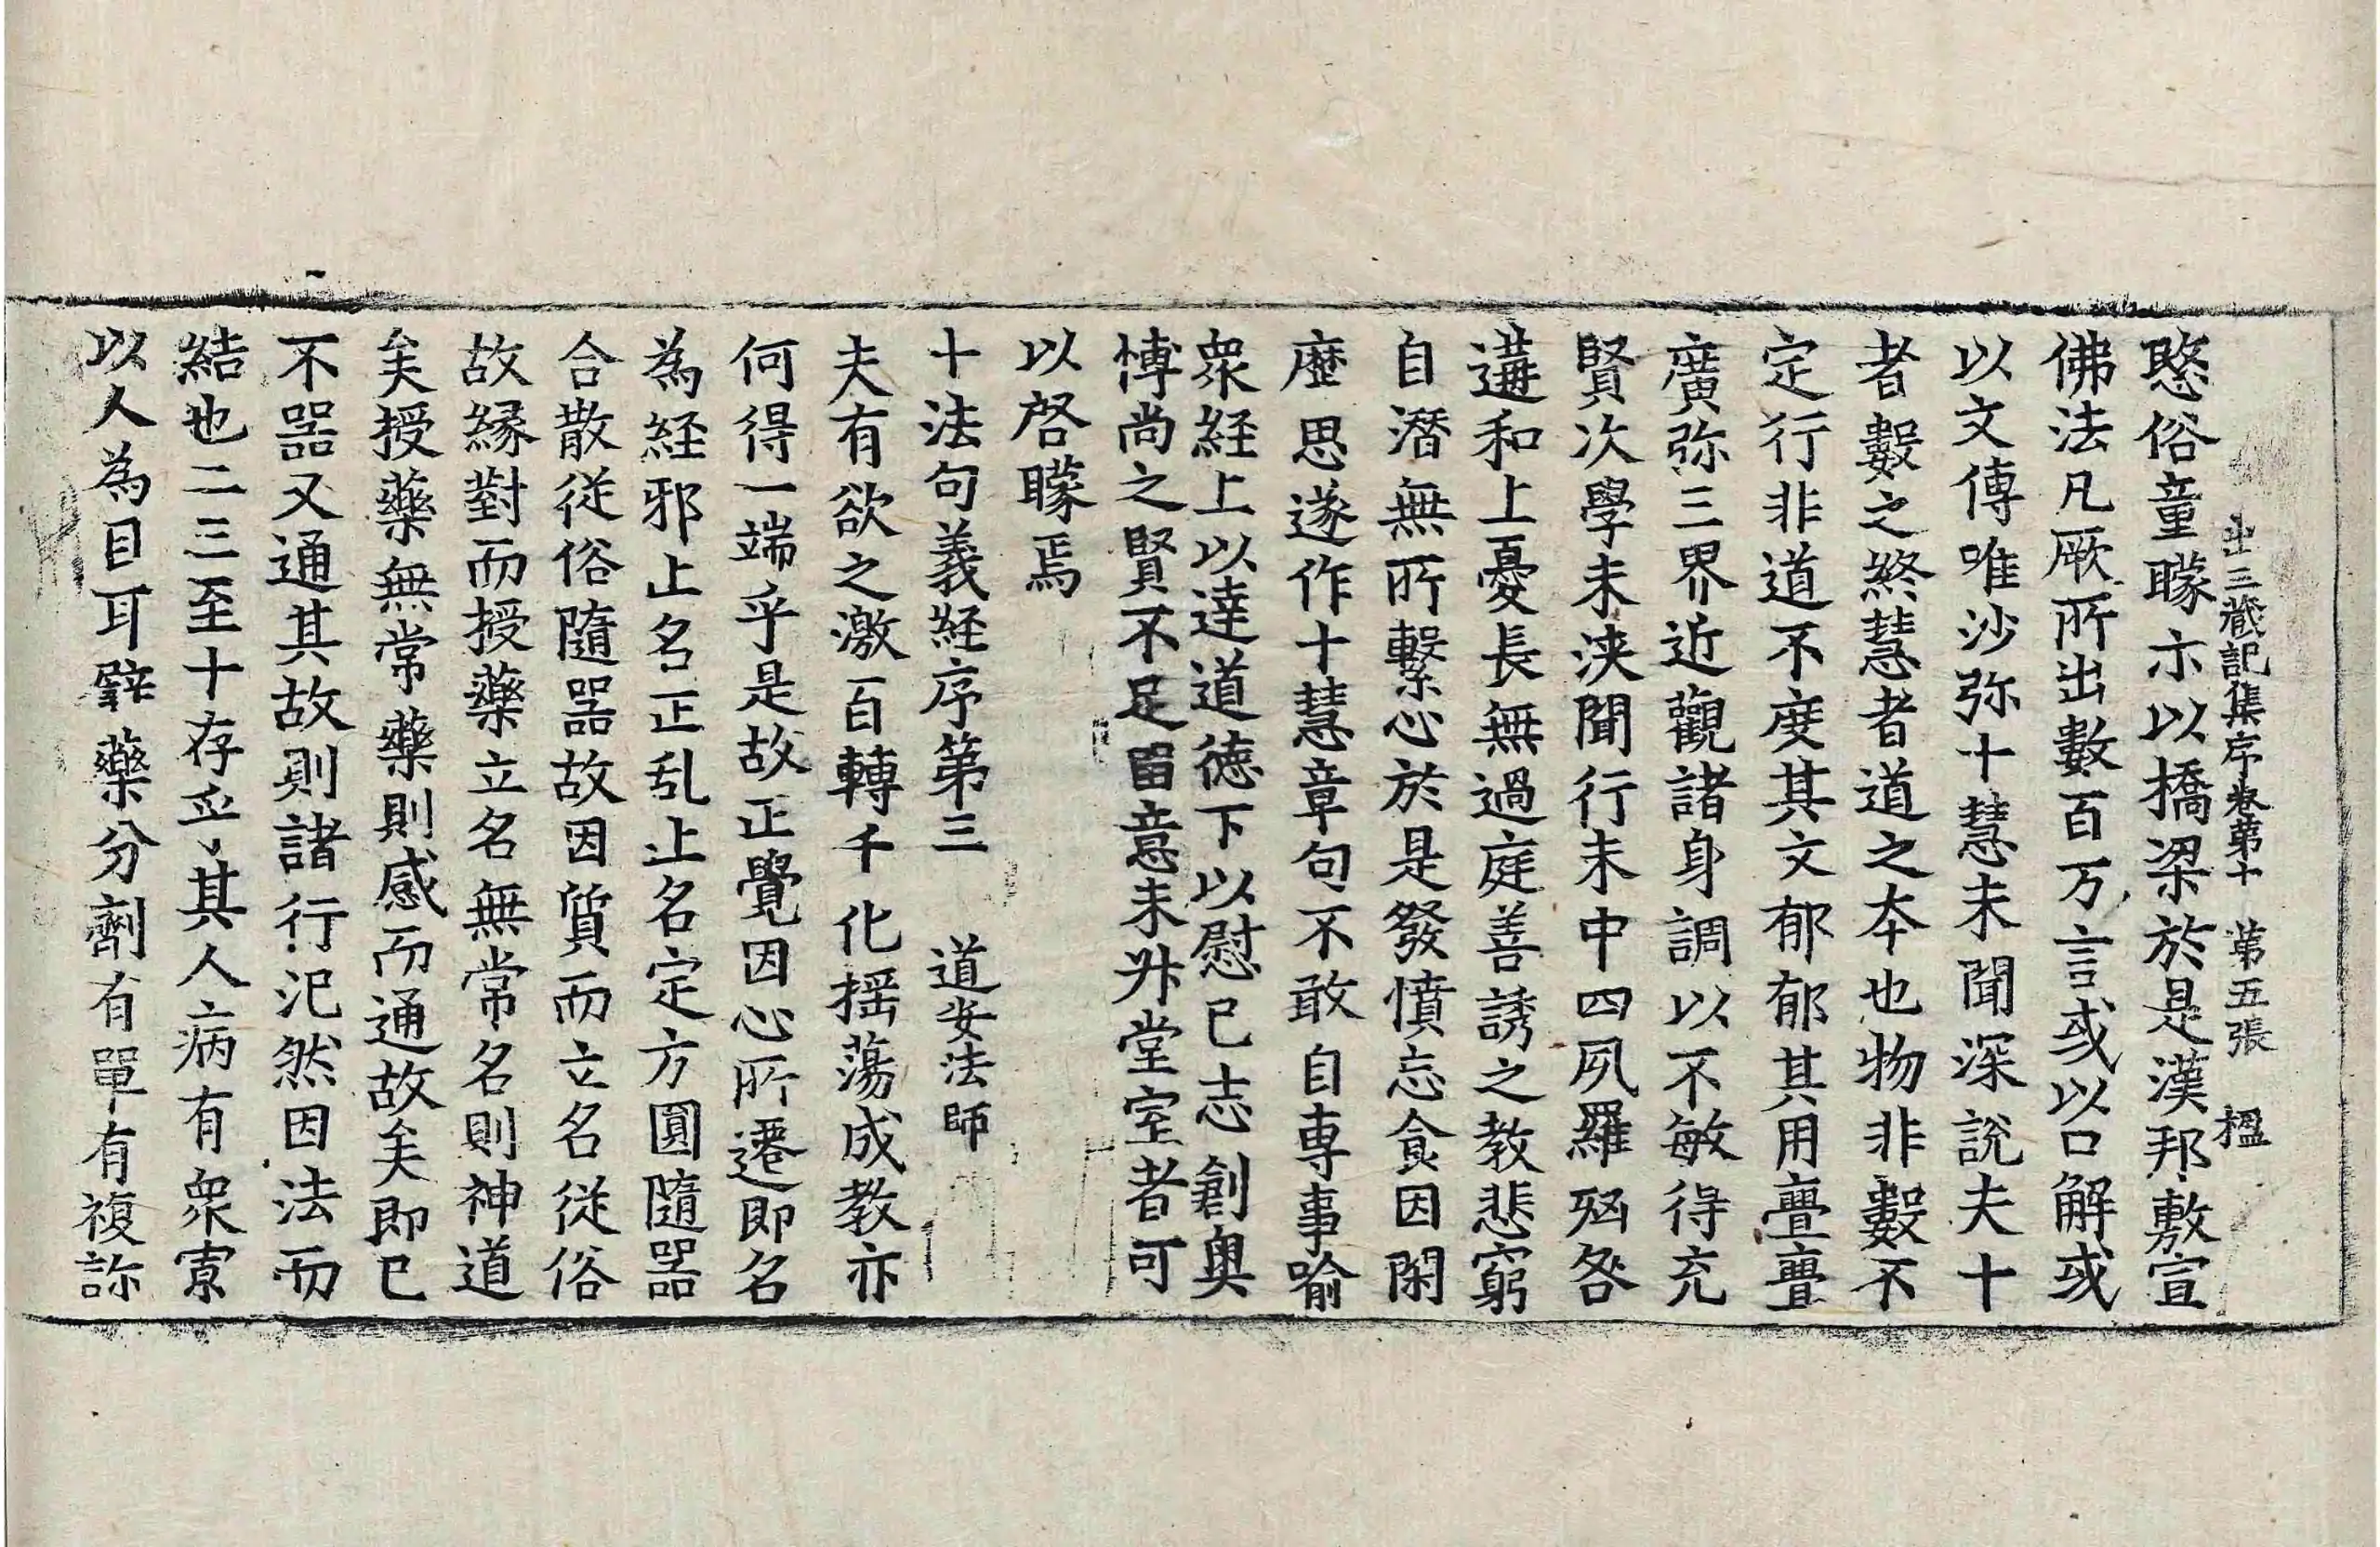 出三藏記集序卷第十　第五張　楹
愍俗童矇示以橋梁於是漢邦敷宣
佛法凡厥所出數百万言或以口解或
以文傳唯沙弥十慧未聞深說夫十
者數之終慧者道之本也物非數不
定行非道不度其文郁郁其用亹亹
廣弥三界近觀諸身調以不敏得充
賢次學未浹聞行未中四夙羅殃咎
遘和上憂長無過庭善誘之教悲窮
自潛無所繫心於是發憤忘食因閑
歷思遂作十慧章句不敢自專事喻
衆經上以達道德下以慰已志創奧
博尚之賢不足留意未升堂室者可
以啓矇焉
十法句義経序第三　道安法師
夫有欲之激百轉千化揺蕩成教亦
何得一端乎是故正覺因心所遷即名
為経邪止名正乱止名定方圓隨器
合散従俗隨器故因質而立名従俗
故縁對而授藥立名無常名則神道
矣授藥無常藥則感而通故矣即已
不器又通其故則諸行汜然因法而
結也二三至十存乎其人病有衆寡
以人為目耳譬藥分劑有單有複訡